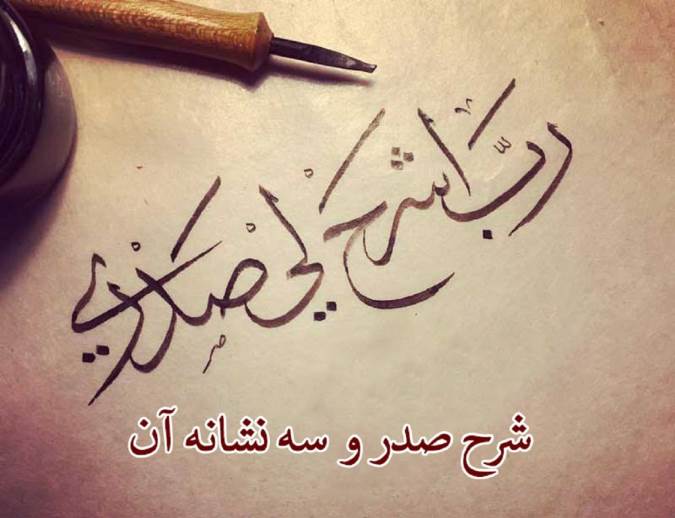 ربّ اشرح لي صدري
شرح صدر و سه نشانه آن